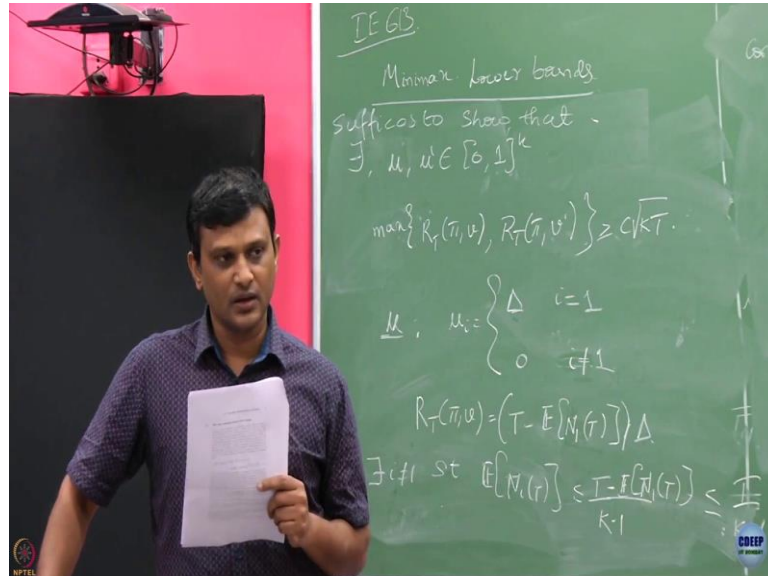 IE 613
Minimax Lower bounds
Suffices to show that -
∃, μ, μ' ∈ [0, 1]^k
max{R_T(π, ν), R_T(π, ν')} ≥ C√KT.
μ ; μ_i = { Δ i=1
0 i≠1
R_T(π, ν) = (T - E[N_1(T)])Δ
∃ i≠1 st E[N_i(T)] ≤ T - E[N_1(T)] / K-1 ≤ T
NPTEL
CDEEP
IIT BOMBAY